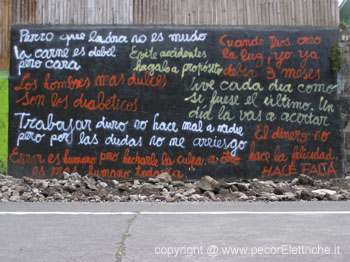 Perro que ladra no es mudo
la carne es debil
pero cara
Evite accidentes
hagalo a propósito
Cuando Dios creo
la luz, yo ya
debia 3 meses
Los hombres mas dulces
Son los diabéticos
Vive cada dia como
si fuese el último. Un
dia la vas a acertar
Trabajar duro no hace mal a nadie
pero por las dudas no me arriesgo
Errar es humano pero hecharle la culpa a otro
es mas humano todavia
El dinero no
hace la felicidad,
HACE FALTA
copyright @ www.pecorElettriche.it